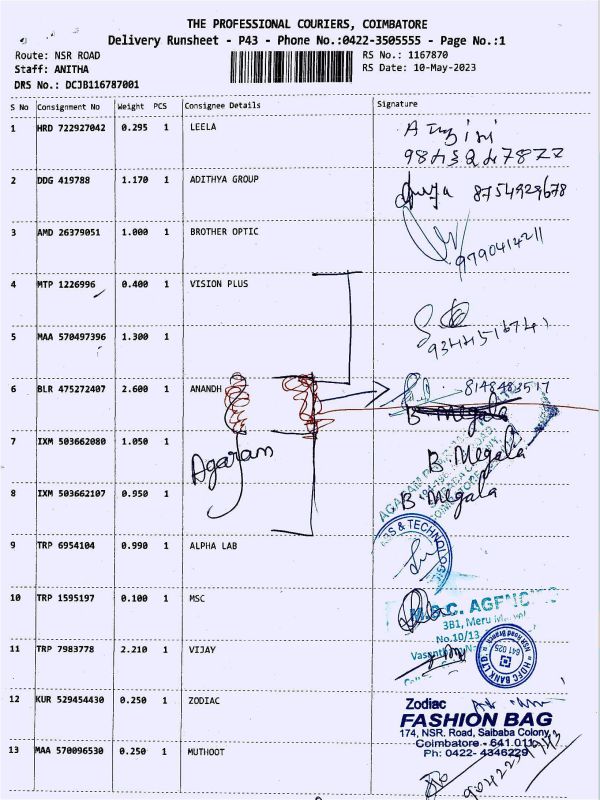 THE PROFESSIONAL COURIERS, COIMBATORE
Delivery Runsheet - P43 - Phone No.:0422-3505555 - Page No.:1
Route: NSR ROAD
RS No.: 1167870
Staff: ANITHA
RS Date: 10-May-2023
DRS No.: DCJB116787001
S No Consignment No Weight PCS Consignee Details Signature
1 HRD 722927042 0.295 1 LEELA
2 DDG 419788 1.170 1 ADITHYA GROUP
8754929678
3 AMD 26379051 1.000 1 BROTHER OPTIC
9790414211
4 MTP 1226996 0.400 1 VISION PLUS
5 MAA 570497396 1.300 1
6 BLR 475272407 2.600 1 ANANDH
8148483517
B Megala
7 IXM 503662080 1.050 1
Agaram
B. Megala
8 IXM 503662107 0.950 1
B Megala
9 TRP 6954104 0.990 1 ALPHA LAB
& TECHNOLOG
10 TRP 1595197 0.100 1 MSC
3B1, Meru
No.10/13
11 TRP 7983778 2.210 1 VIJAY
HDFC BANK LTD.
NSR Road Branch
641 025
12 KUR 529454430 0.250 1 ZODIAC
Zodiac
FASHION BAG
174, NSR. Road, Saibaba Colony,
Coimbatore - 641 011
Ph: 0422- 4346229
13 MAA 570096530 0.250 1 MUTHOOT